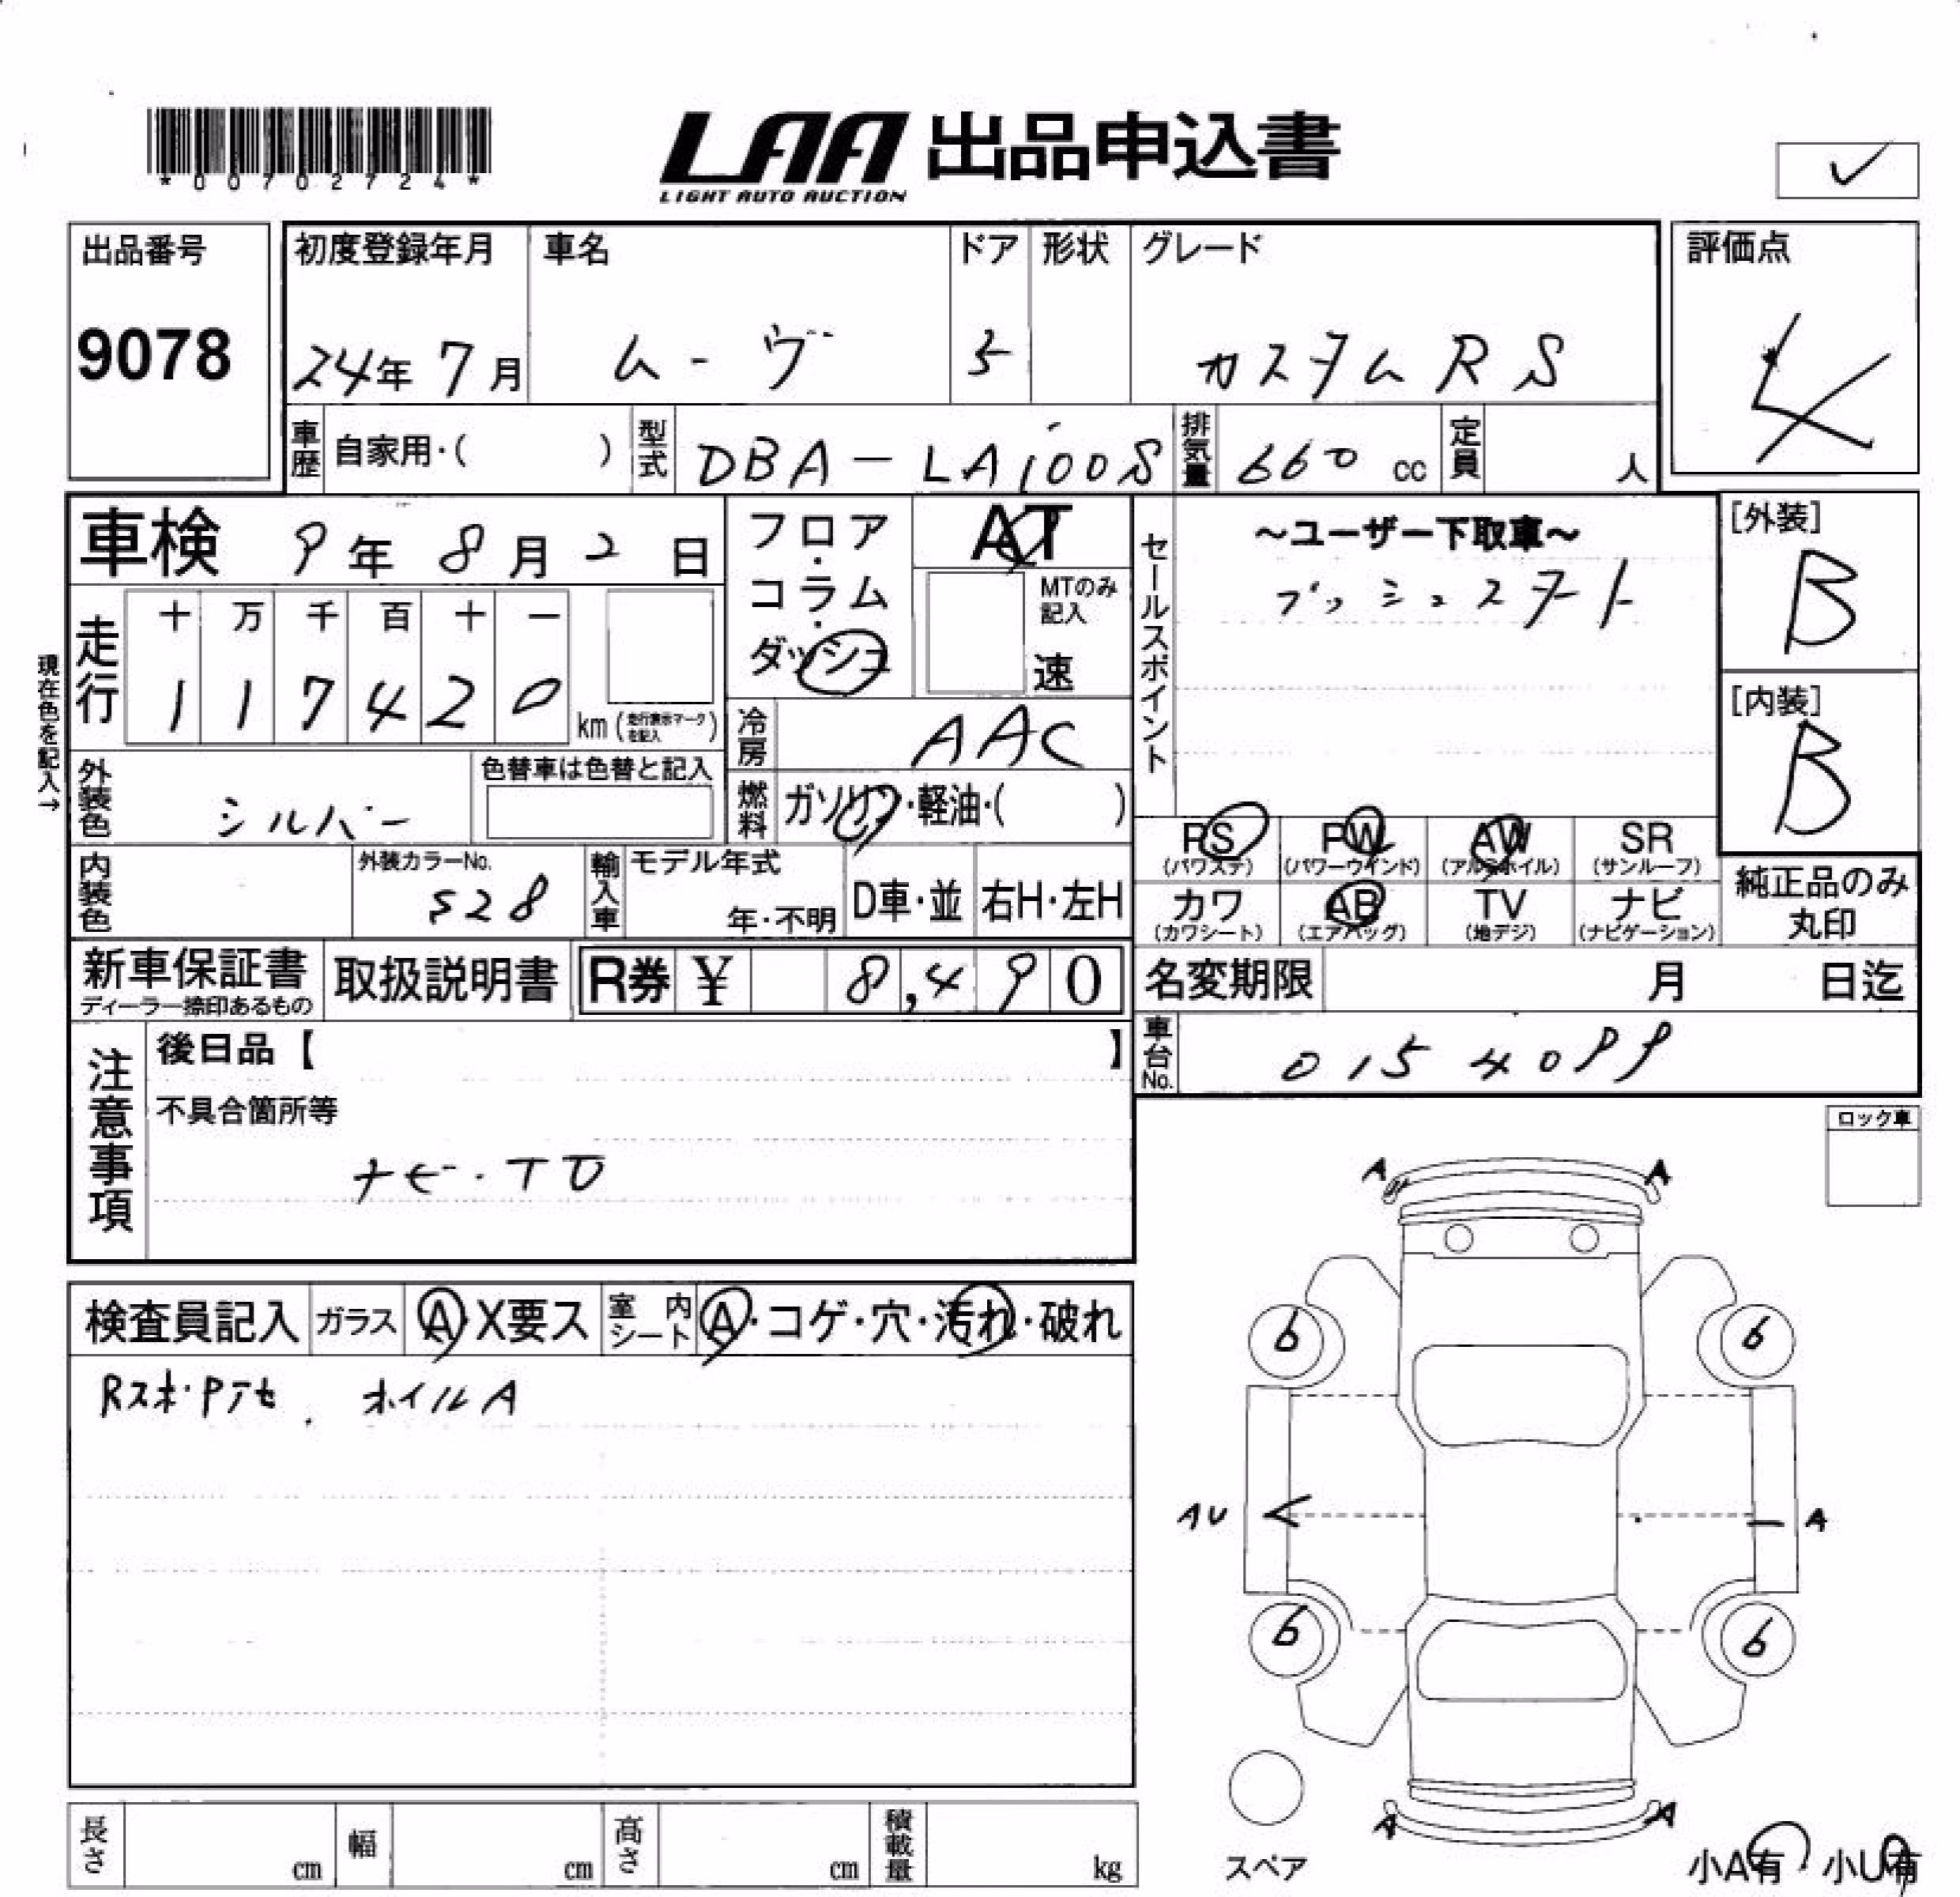 *00702724*
LAA 出品申込書
LIGHT AUTO AUCTION
✓
出品番号 9078
初度登録年月 24年 7月
車名 ムーヴ
ドア 5
形状
グレード カスタムRS
評価点 4
車歴 自家用・( )
型式 DBA-LA100S
排気量 660 cc
定員 人
車検 9年 8月 2日
フロア・コラム・ダッシュ
AT
MTのみ記入
速
セールスポイント
～ユーザー下取車～
プッシュスタート
[外装] B
[内装] B
現在色を記入→
走行 十 万 千 百 十 一
1 1 7 4 2 0
km (走行表示マークを記入)
冷房 AAC
外装色 シルバー
色替車は色替と記入
燃料 ガソリン・軽油・( )
PS (パワステ) PW (パワーウインド) AW (アルミホイル) SR (サンルーフ)
カワ (カワシート) AB (エアバッグ) TV (地デジ) ナビ (ナビゲーション)
純正品のみ丸印
内装色
外装カラーNo. S28
輸入車 モデル年式 年・不明
D車・並 右H・左H
新車保証書
ディーラー捺印あるもの
取扱説明書
R券 ¥ 8,490
名変期限 月 日迄
車台No. 0154099
注意事項
後日品【 】
不具合箇所等
ナビ・TV
ロック車
検査員記入 ガラス A・X要ス
室内シート A・コゲ・穴・汚れ・破れ
Rスポ・Pアセ、ホイルA
A A
6 6
AU A
6 6
A A
スペア
小A有・小U有
長さ cm 幅 cm 高さ cm 積載量 kg